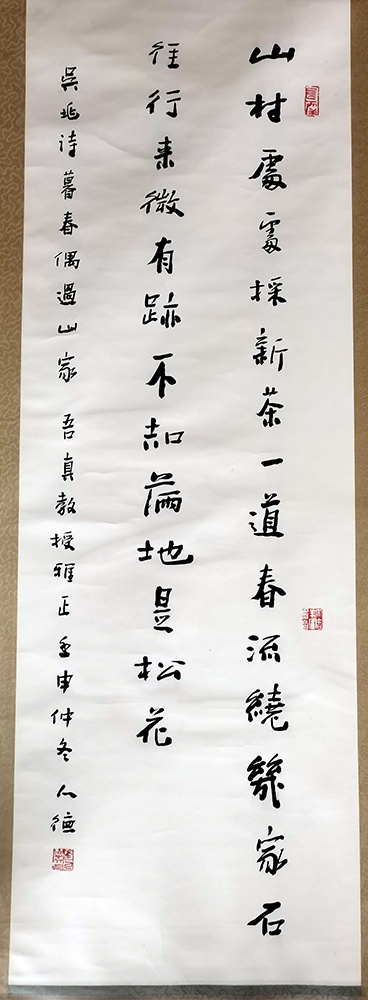 山村處處採新茶一道春流繞幾家石
徑行來微有跡不知滿地是松花
吳兆詩暮春偶過山家 吾真教授雅正壬申仲冬人德